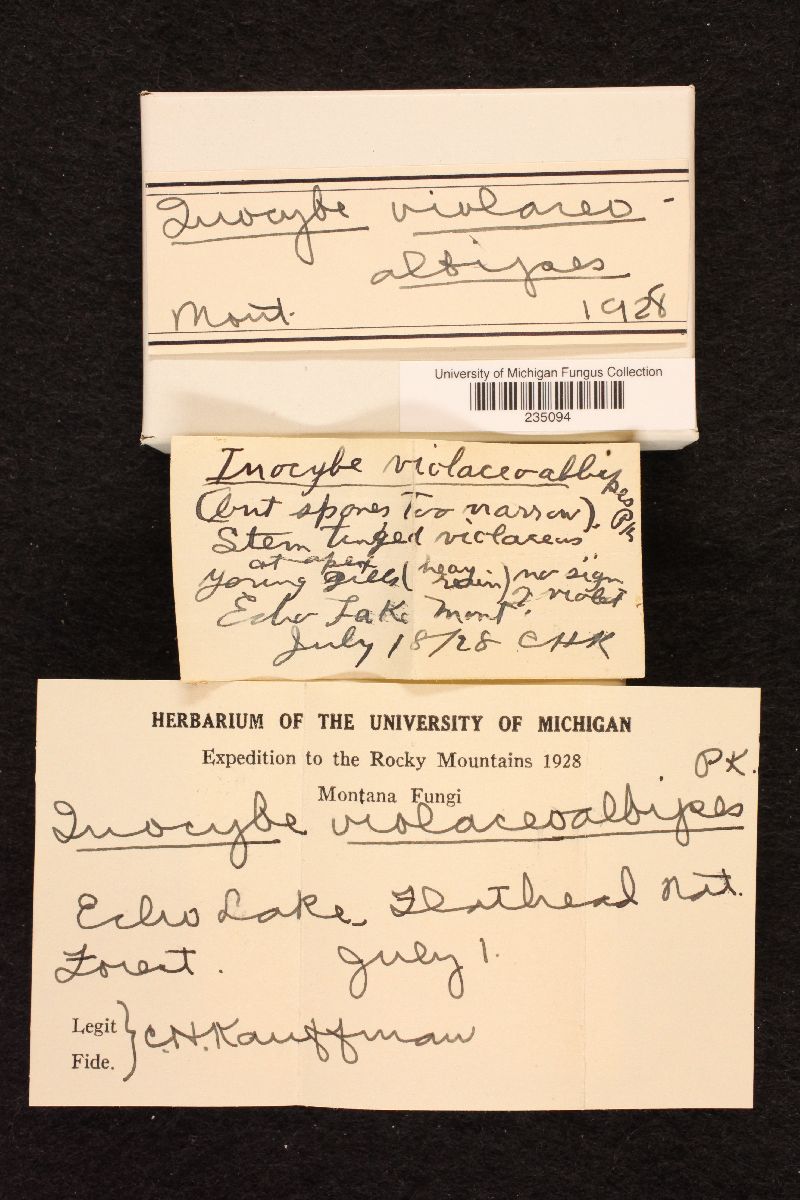 Inocybe violaceo-
albipes
Mont. 1928
University of Michigan Fungus Collection
235094
Inocybe violaceoalbipes Pk
(but spores too narrow).
Stem tinged violaceus
at apex
young gills (heavy rain) no sign
of violet
Echo Lake Mont.
July 18/28 CHK
HERBARIUM OF THE UNIVERSITY OF MICHIGAN
Expedition to the Rocky Mountains 1928
Montana Fungi
PK.
Inocybe violaceoalbipes
Echo Lake Flathead Nat.
Forest. July 1.
Legit
Fide. } C.H.Kauffman